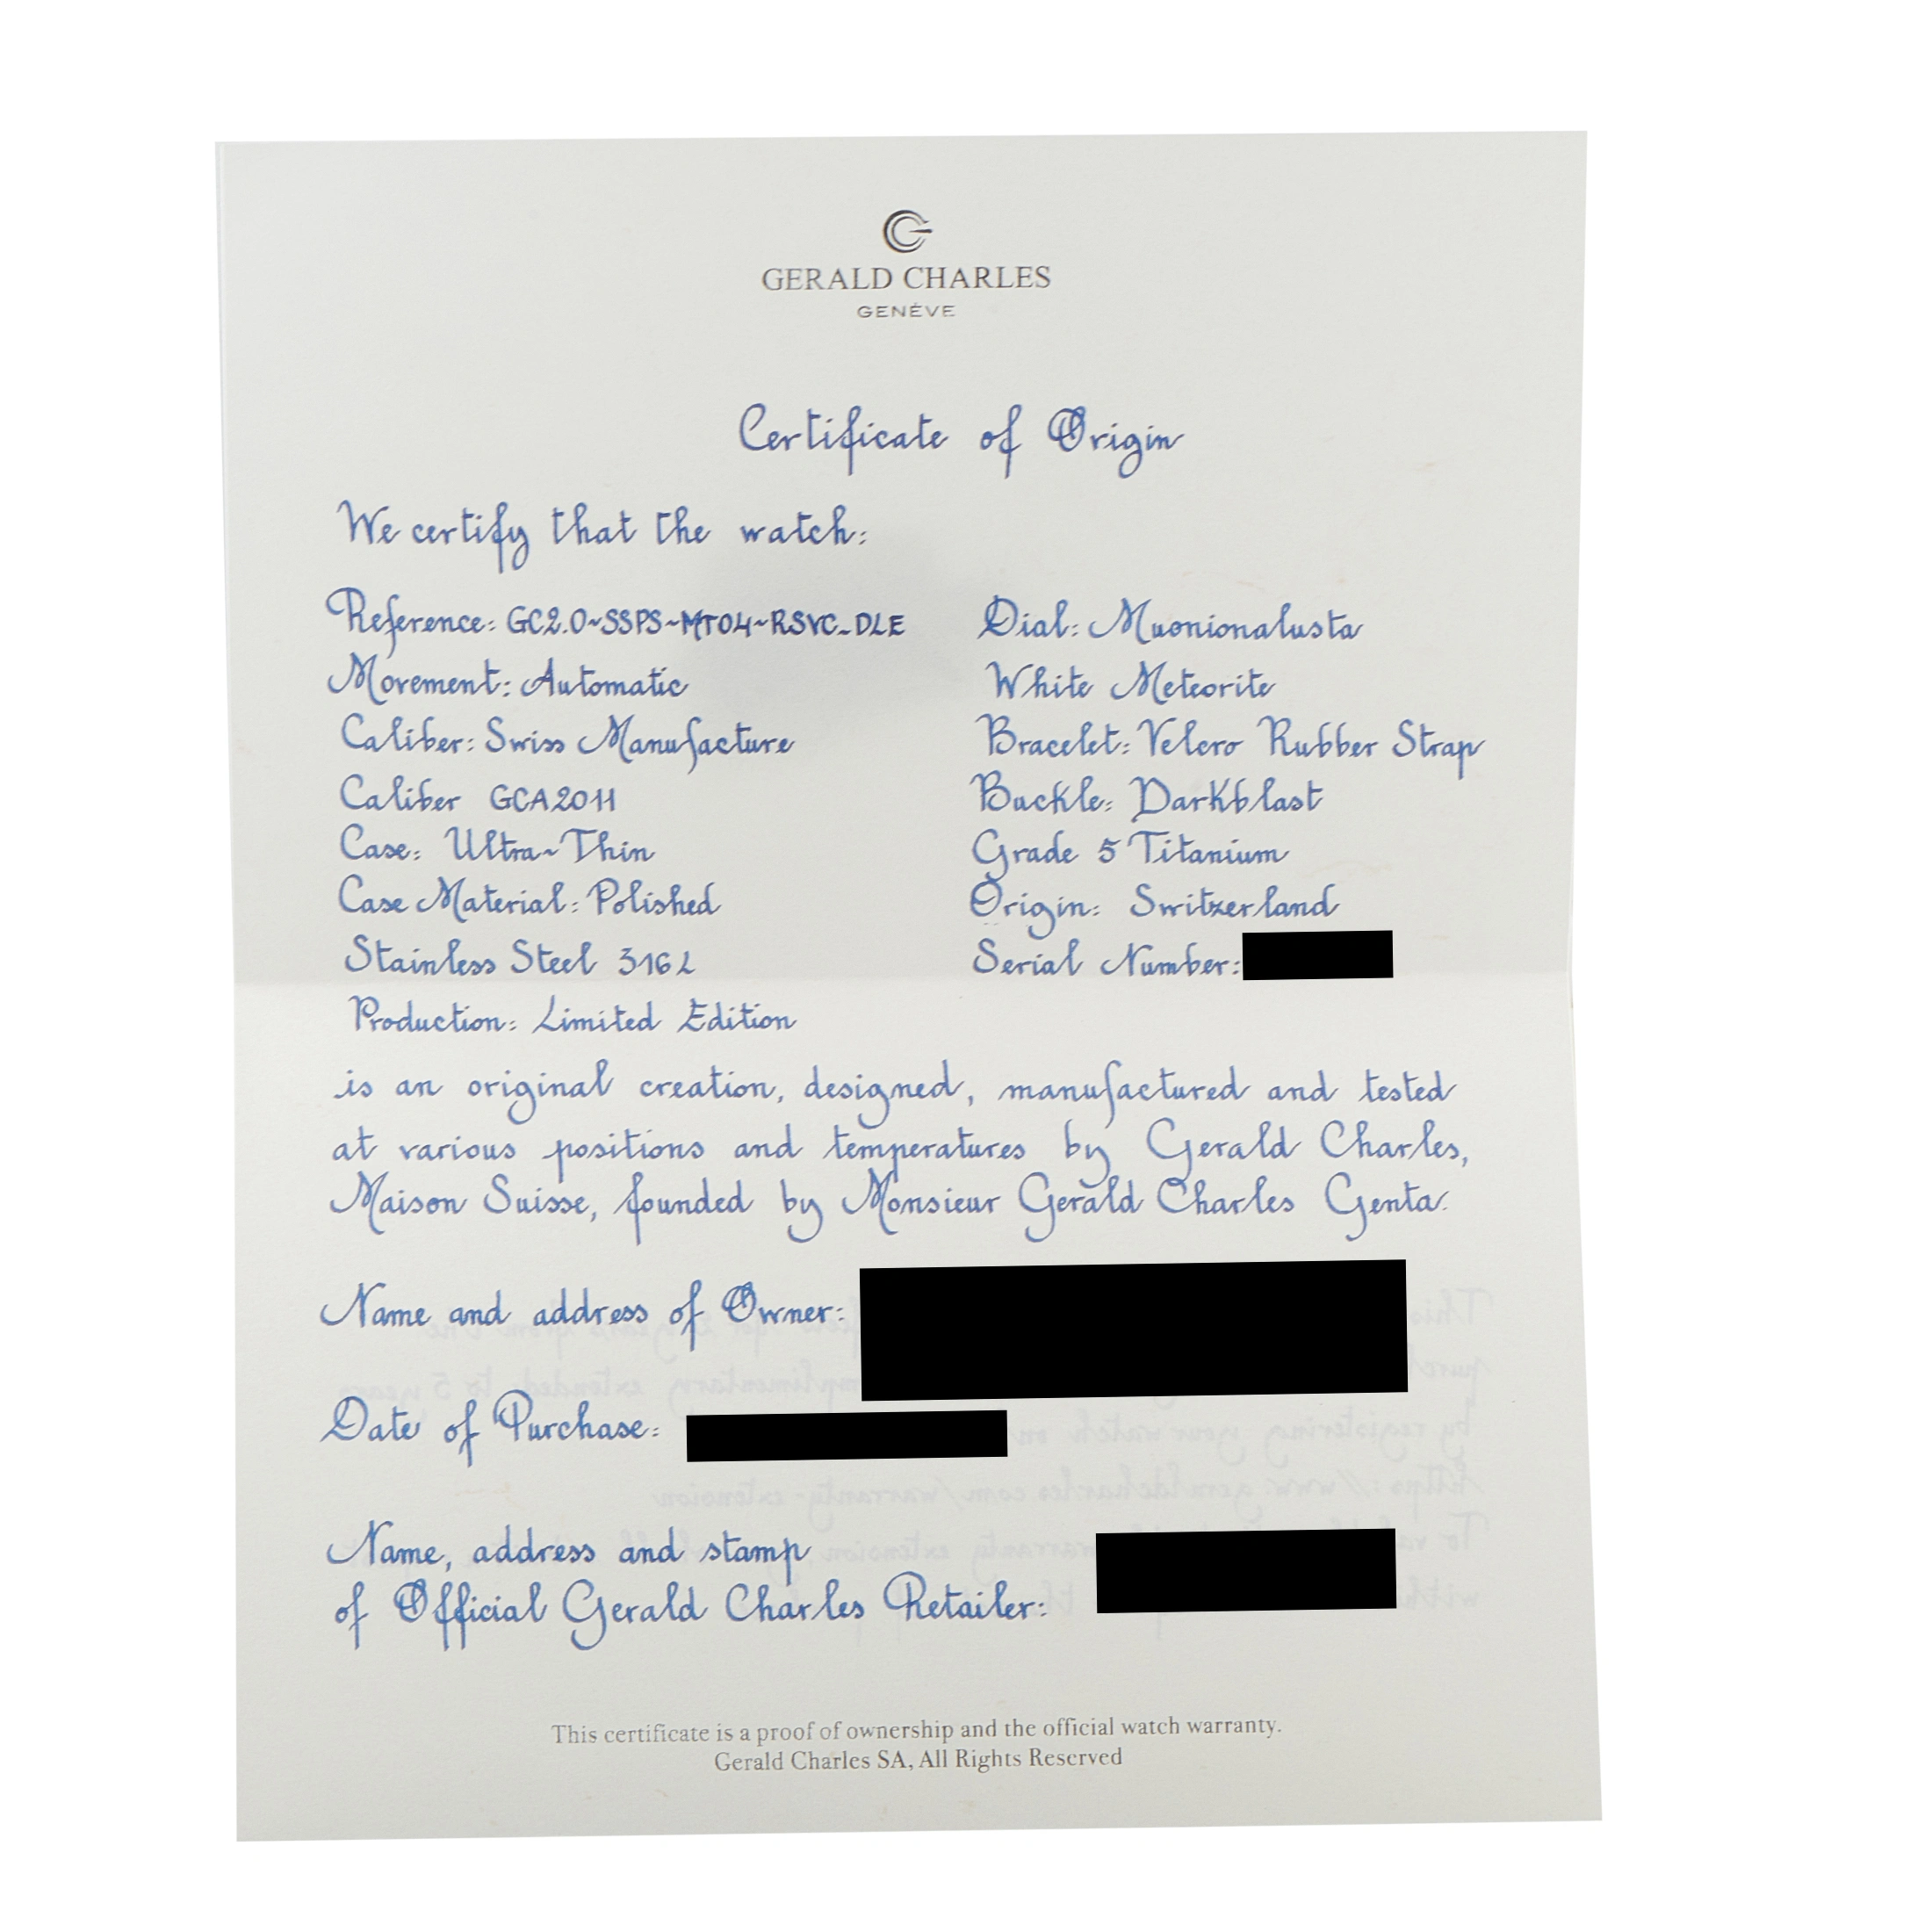 GERALD CHARLES
GENÈVE
Certificate of Origin
We certify that the watch:
Reference: GC2.0~SSPS~MT04~RSVC_DLE
Movement: Automatic
Caliber: Swiss Manufacture
Caliber GCA2011
Case: Ultra~Thin
Case Material: Polished
Stainless Steel 316L
Production: Limited Edition
Dial: Muonionalusta
White Meteorite
Bracelet: Velcro Rubber Strap
Buckle: Darkblast
Grade 5 Titanium
Origin: Switzerland
Serial Number:
is an original creation, designed, manufactured and tested
at various positions and temperatures by Gerald Charles,
Maison Suisse, founded by Monsieur Gerald Charles Genta.
Name and address of Owner:
Date of Purchase:
Name, address and stamp
of Official Gerald Charles Retailer:
This certificate is a proof of ownership and the official watch warranty.
Gerald Charles SA, All Rights Reserved